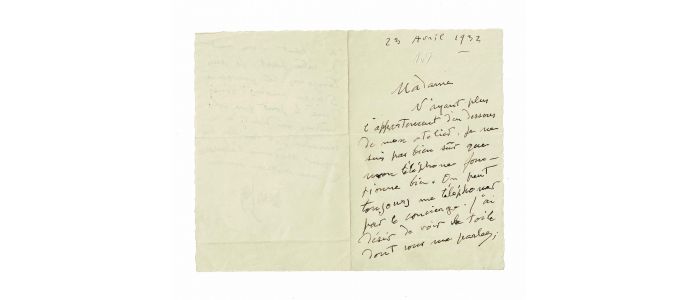 23 Avril 1932
Madame
N'ayant plus
l'appartement du dessous
de mon atelier, je ne
suis pas bien sûr que
mon téléphone fonc-
tionne bien. On peut
toujours me téléphoner
par le concierge. J'ai
désir de voir la toile
dont vous me parlez,